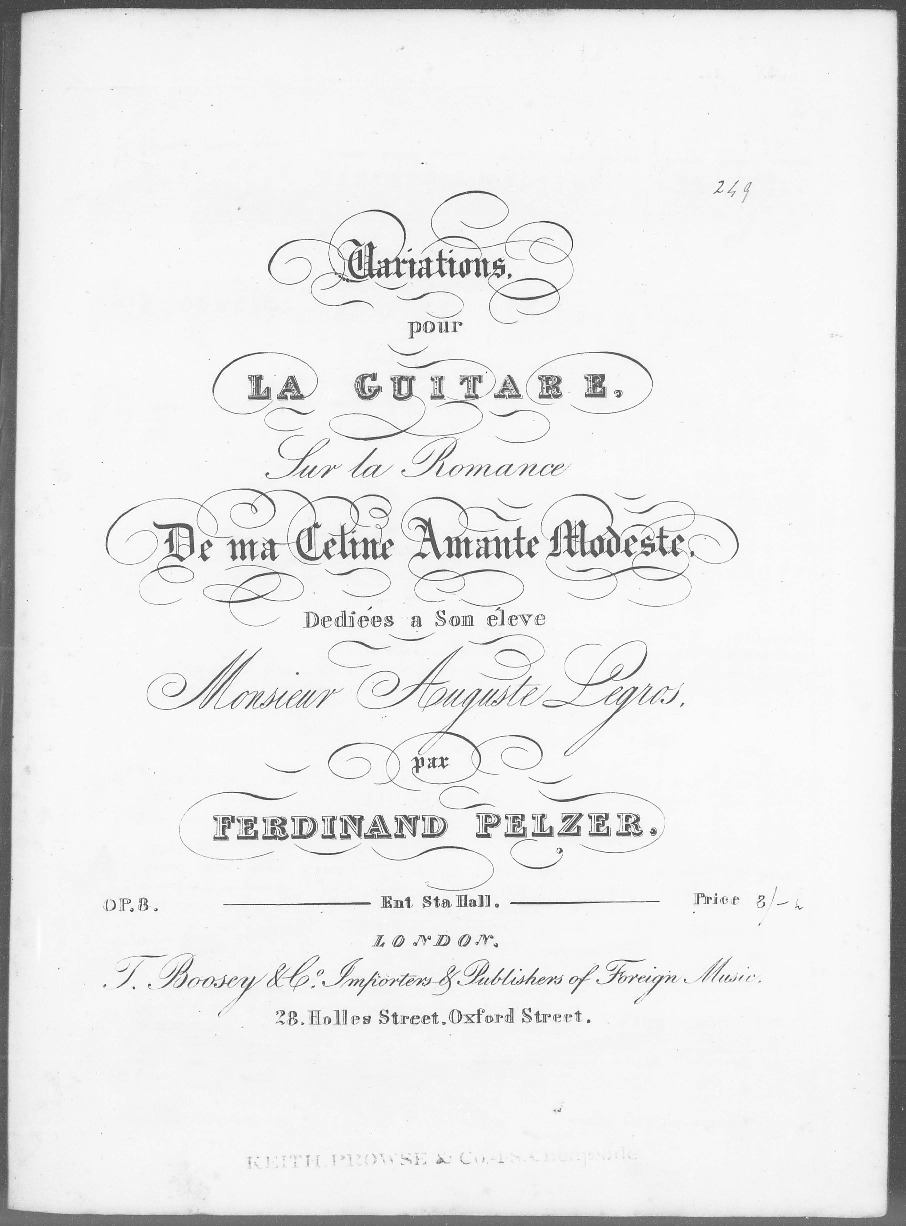 249
Variations,
pour
LA GUITARE,
Sur la Romance
De ma Celine Amante Modeste,
Dediées a Son éleve
Monsieur Auguste Legros,
par
FERDINAND PELZER.
OP. 8. Ent Sta Hall. Price 3/-
LONDON,
T. Boosey & Co. Importers & Publishers of Foreign Music.
28. Holles Street, Oxford Street.
KEITH PROWSE & Co. 48. Cheapside